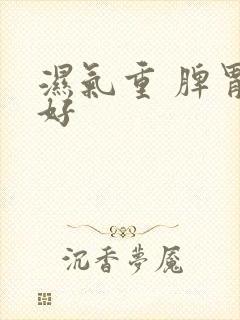 濕氣重 脾胃
好
沉香夢魘